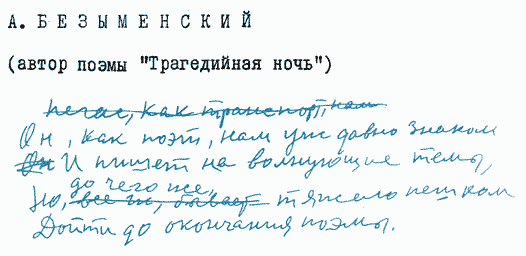 А. БЕЗЫМЕНСКИЙ
(автор поэмы "Трагедийная ночь")
Пегас, как транспорт, нам
Он, как поэт, нам уж давно знаком
Он И пишет на волнующие темы,
до чего же,
Но, все ж, бывает тяжело пешком
Дойти до окончания поэмы.